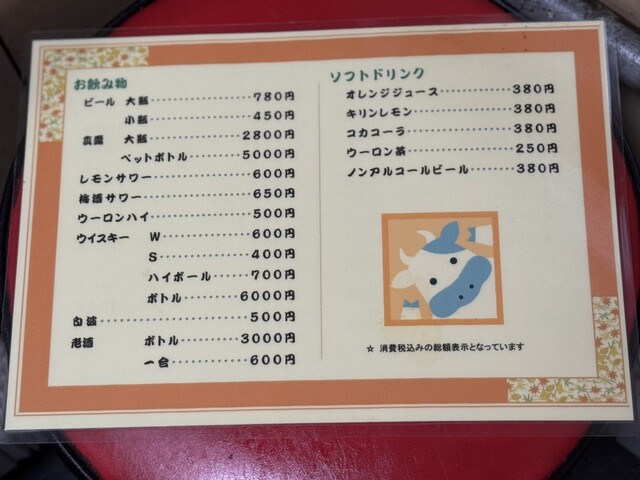 お飲み物
ビール 大瓶 780円
小瓶 450円
真露 大瓶 2800円
ペットボトル 5000円
レモンサワー 600円
梅酒サワー 650円
ウーロンハイ 500円
ウイスキー W 600円
S 400円
ハイボール 700円
ボトル 6000円
白波 500円
老酒 ボトル 3000円
一合 600円
ソフトドリンク
オレンジジュース 380円
キリンレモン 380円
コカコーラ 380円
ウーロン茶 250円
ノンアルコールビール 380円
☆ 消費税込みの総額表示となっています